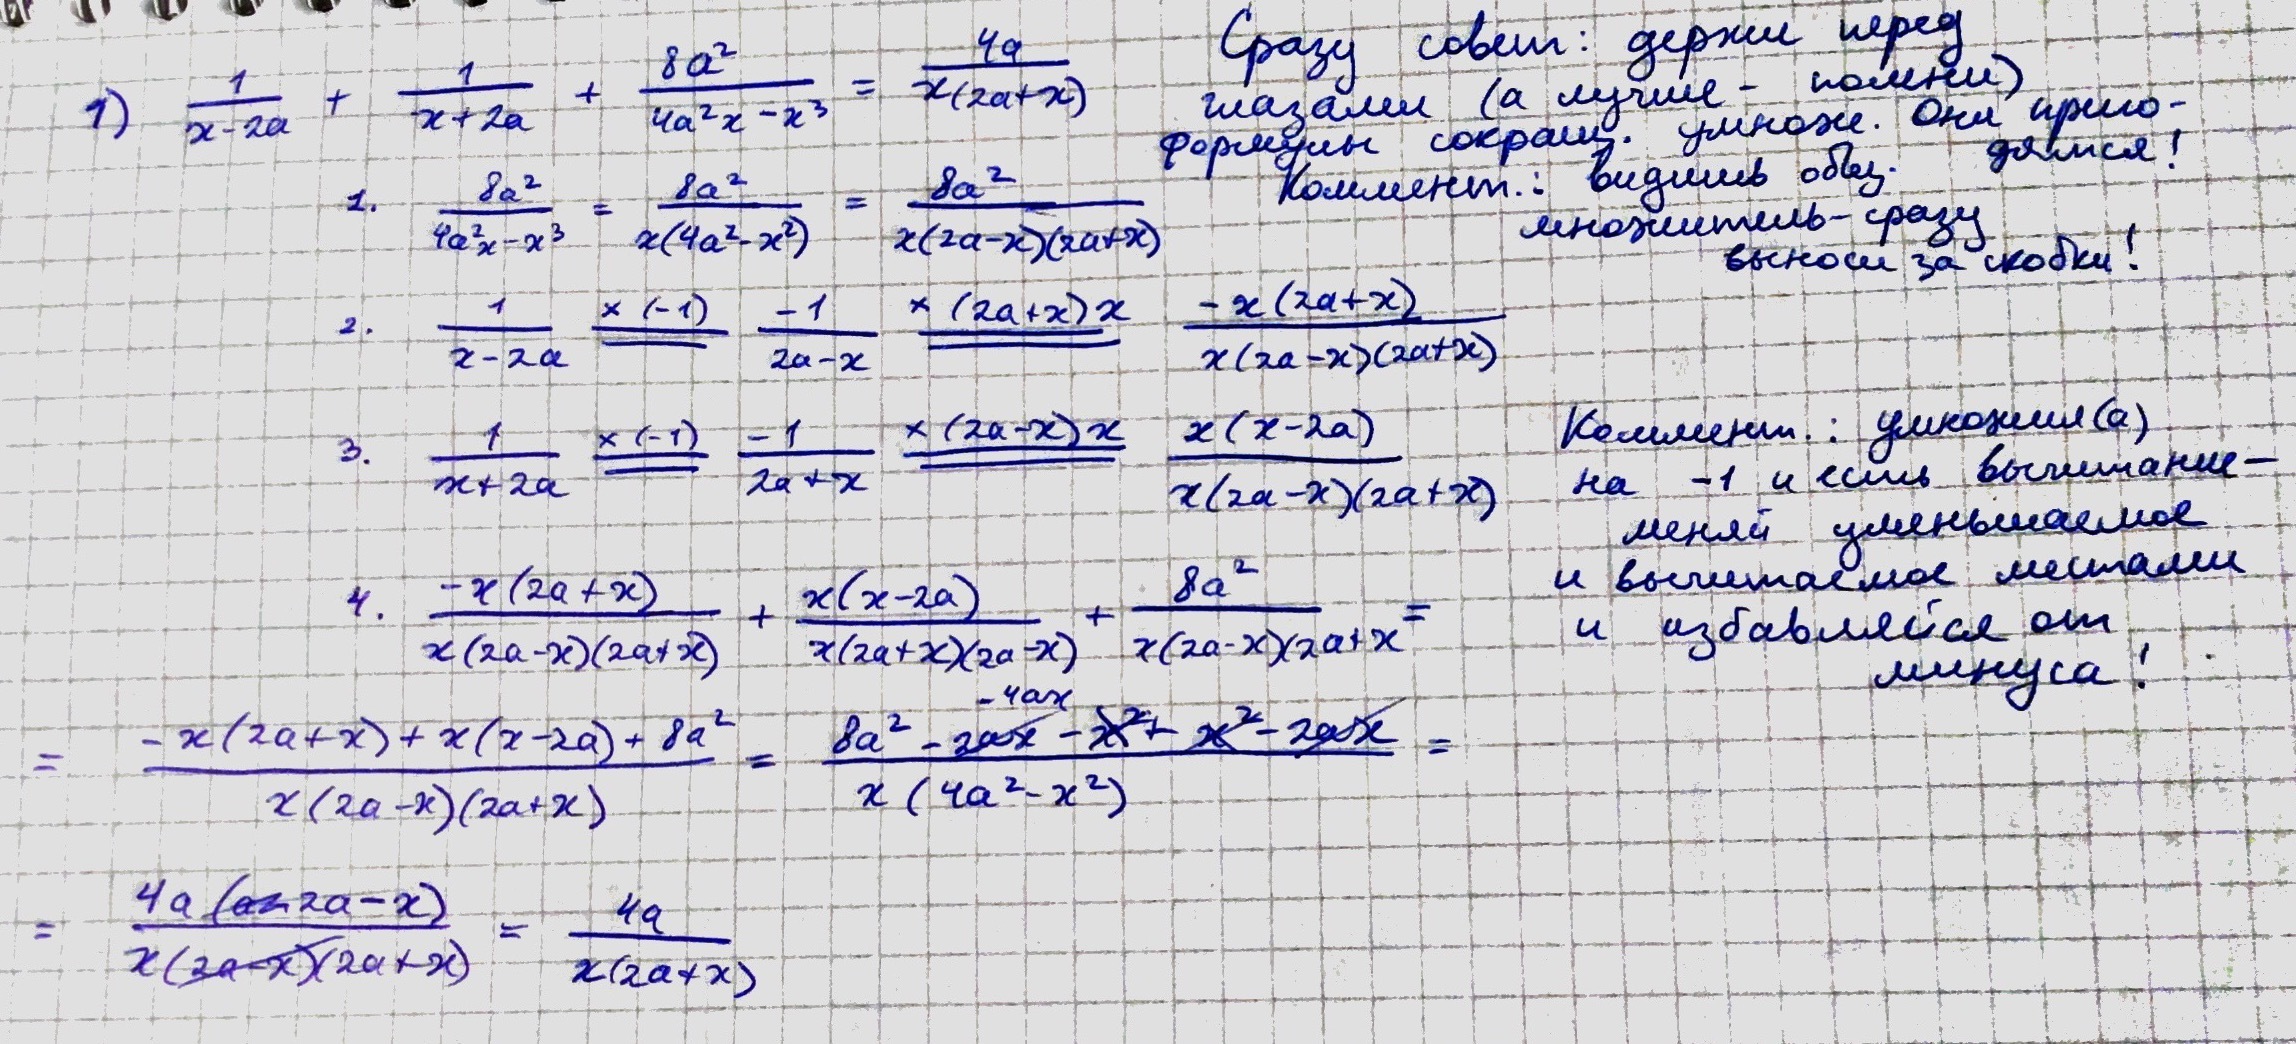 1) 1/(x-2a) + 1/(x+2a) + 8a²/(4a²x-x³) = 4a/(x(2a+x))
Сразу совет: держи перед
глазами (а лучше - помни)
формулы сокращ. умнож. Они приго-
дятся!
1. 8a²/(4a²x-x³) = 8a²/(x(4a²-x²)) = 8a²/(x(2a-x)(2a+x))
Коммент.: видишь общ.
множитель-сразу
выноси за скобки!
2. 1/(x-2a) × (-1) -1/(2a-x) × (2a+x)x -x(2a+x)/(x(2a-x)(2a+x))
3. 1/(x+2a) × (-1) -1/(2a+x) × (2a-x)x x(x-2a)/(x(2a-x)(2a+x))
Коммент.: умножил(а)
на -1 и есть вычитание-
меняй уменьшаемое
и вычитаемое местами
и избавляйся от
минуса!
4. -x(2a+x)/(x(2a-x)(2a+x)) + x(x-2a)/(x(2a+x)(2a-x)) + 8a²/(x(2a-x)(2a+x =
-4ax
= (-x(2a+x)+x(x-2a)+8a²)/(x(2a-x)(2a+x)) = (8a²-2ax-x²+x²-2ax)/(x(4a²-x²)) =
= 4a(2a-x)/(x(2a-x)(2a+x)) = 4a/(x(2a+x))